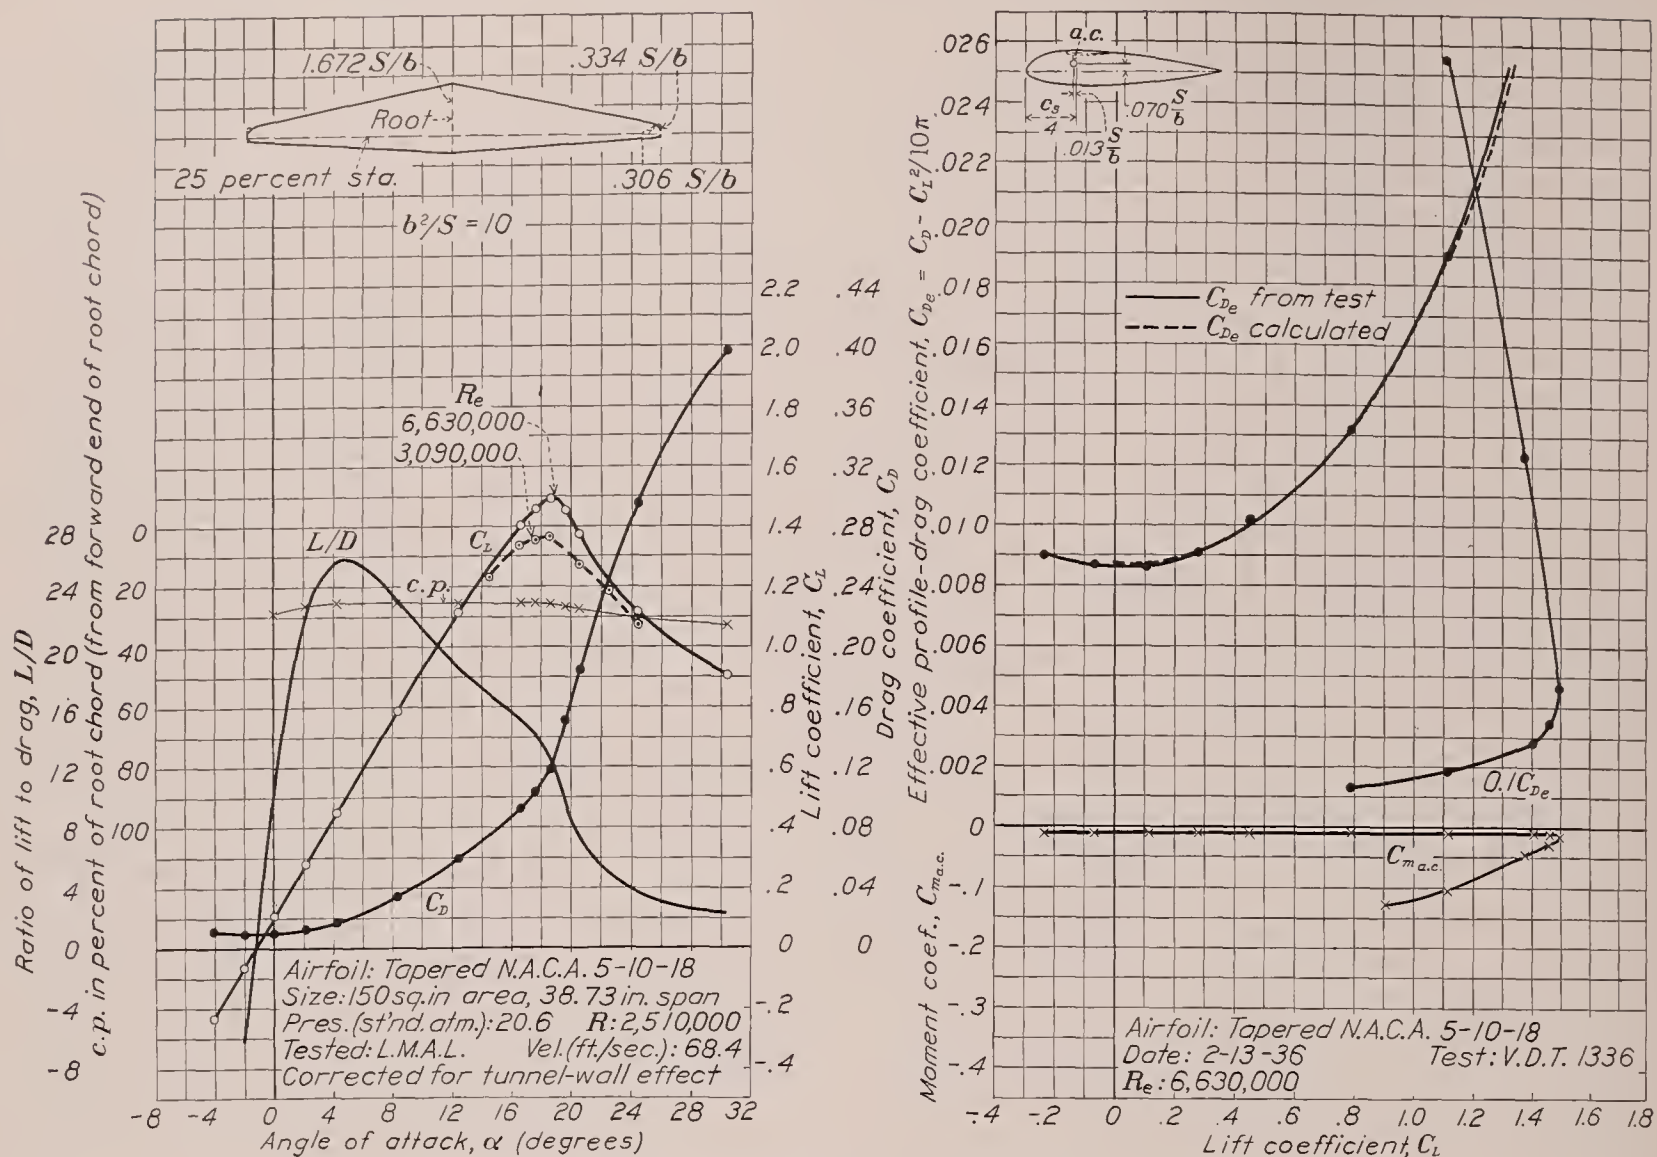 1.672 S/b
.334 S/b
Root
25 percent sta.
.306 S/b
b²/S = 10
Ratio of lift to drag, L/D
c.p. in percent of root chord (from forward end of root chord)
28
24
20
16
12
8
4
0
-4
-8
0
20
40
60
80
100
R_e
6,630,000
3,090,000
L/D
C_L
c.p.
C_D
2.2
2.0
1.8
1.6
1.4
1.2
1.0
.8
.6
.4
.2
0
-.2
-.4
Lift coefficient, C_L
.44
.40
.36
.32
.28
.24
.20
.16
.12
.08
.04
0
Drag coefficient, C_D
Airfoil: Tapered N.A.C.A. 5-10-18
Size: 150 sq.in area, 38.73 in. span
Pres. (st'nd. atm.): 20.6 R: 2,510,000
Tested: L.M.A.L. Vel. (ft./sec.): 68.4
Corrected for tunnel-wall effect
-8 -4 0 4 8 12 16 20 24 28 32
Angle of attack, α (degrees)
a.c.
c_s/4
.070 S/b
.013 S/b
Effective profile-drag coefficient, C_De = C_D - C_L²/10π
.026
.024
.022
.020
.018
.016
.014
.012
.010
.008
.006
.004
.002
0
C_De from test
C_De calculated
0.1C_De
C_m a.c.
Moment coef., C_m a.c.
-.1
-.2
-.3
-.4
Airfoil: Tapered N.A.C.A. 5-10-18
Date: 2-13-36 Test: V.D.T. 1336
R_e: 6,630,000
-.4 -.2 0 .2 .4 .6 .8 1.0 1.2 1.4 1.6 1.8
Lift coefficient, C_L